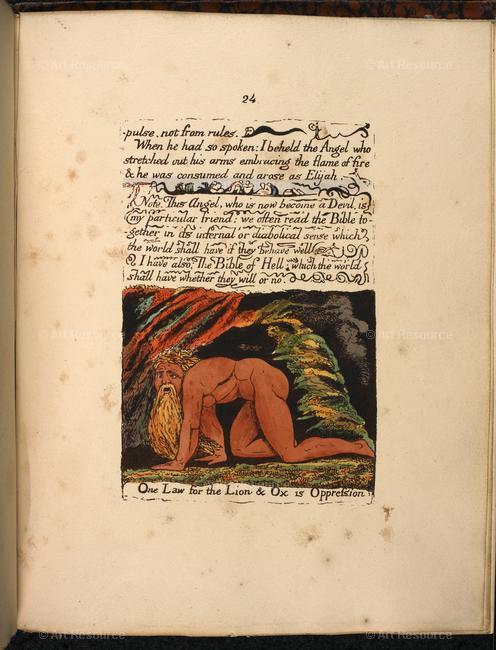 © Art Resource
© Art Resource
24
pulse, not from rules.
When he had so spoken: I beheld the Angel who
stretched out his arms embracing the flame of fire
& he was consumed and arose as Elijah.
Note. This Angel, who is now become a Devil, is
my particular friend: we often read the Bible to-
gether in its infernal or diabolical sense which
the world shall have if they behave well
I have also; The Bible of Hell: which the world
shall have whether they will or no.
© Art Resource
© Art Resource
One Law for the Lion & Ox is Oppression
© Art Resource
© Art Resource